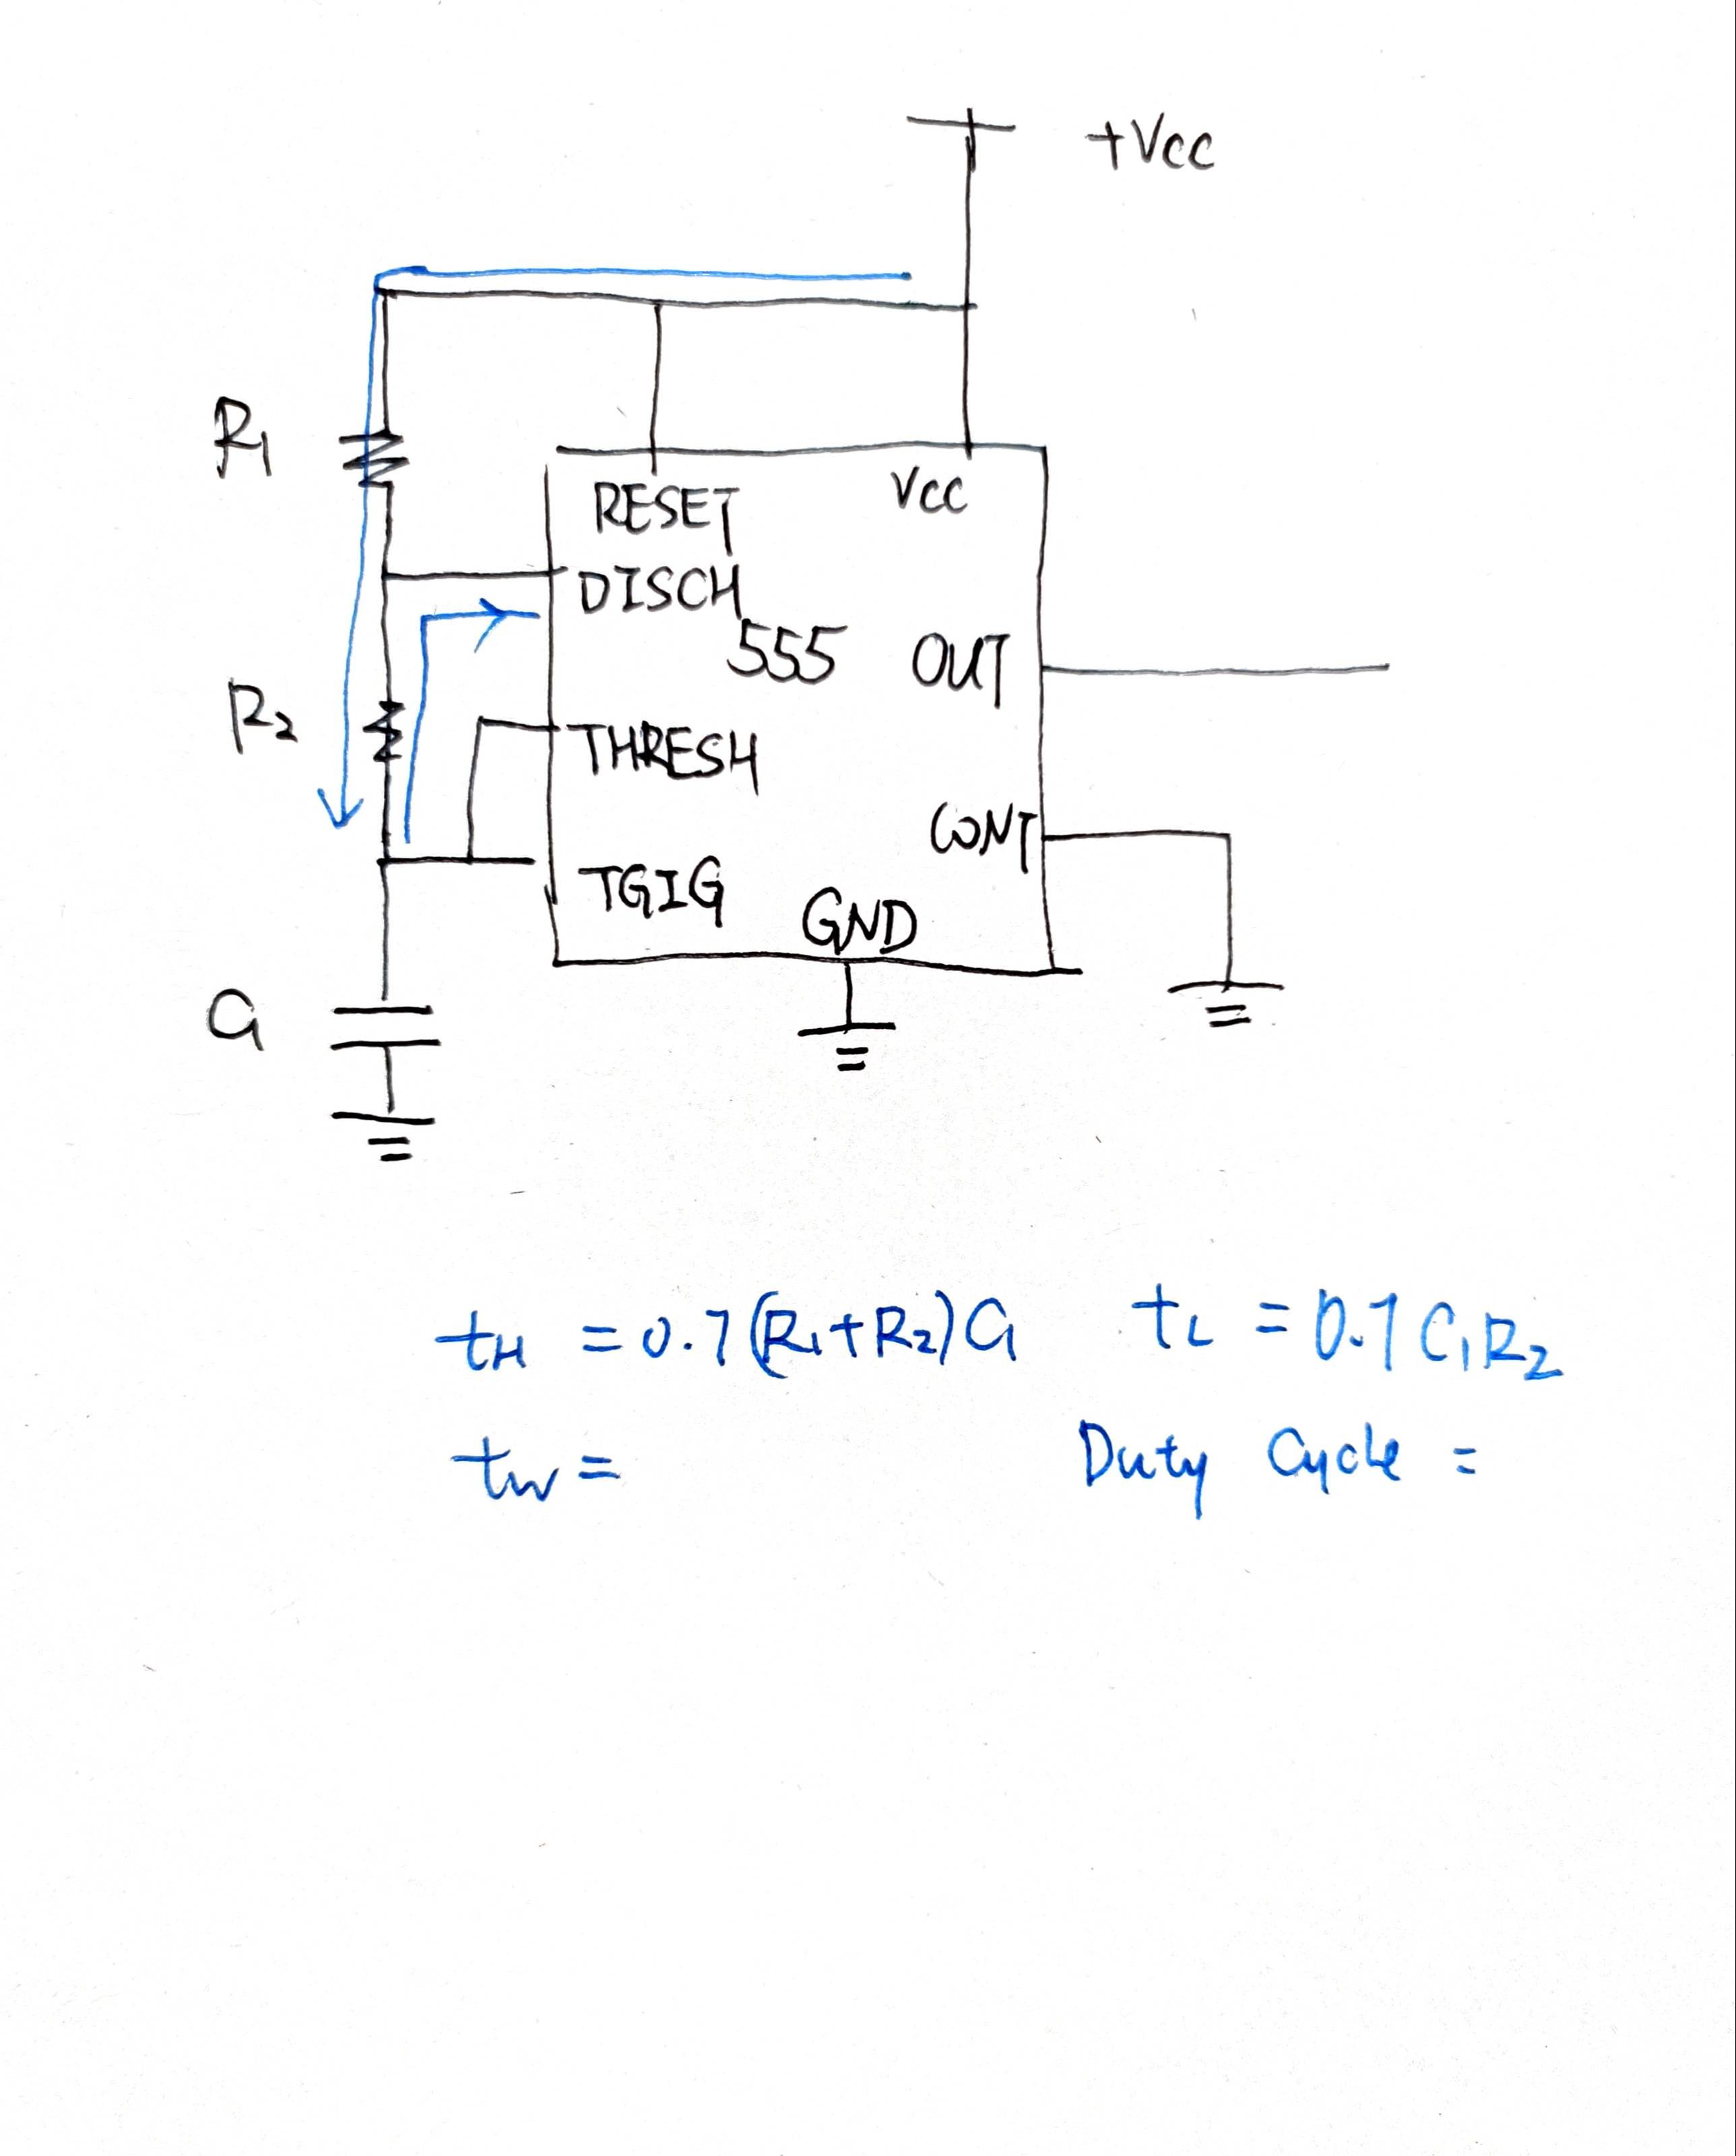 +Vcc
R1
RESET
Vcc
DISCH
555
OUT
R2
THRESH
CONT
TGIG
GND
C1
tH = 0.7(R1+R2)C1
tL = 0.7C1R2
tw =
Duty Cycle =